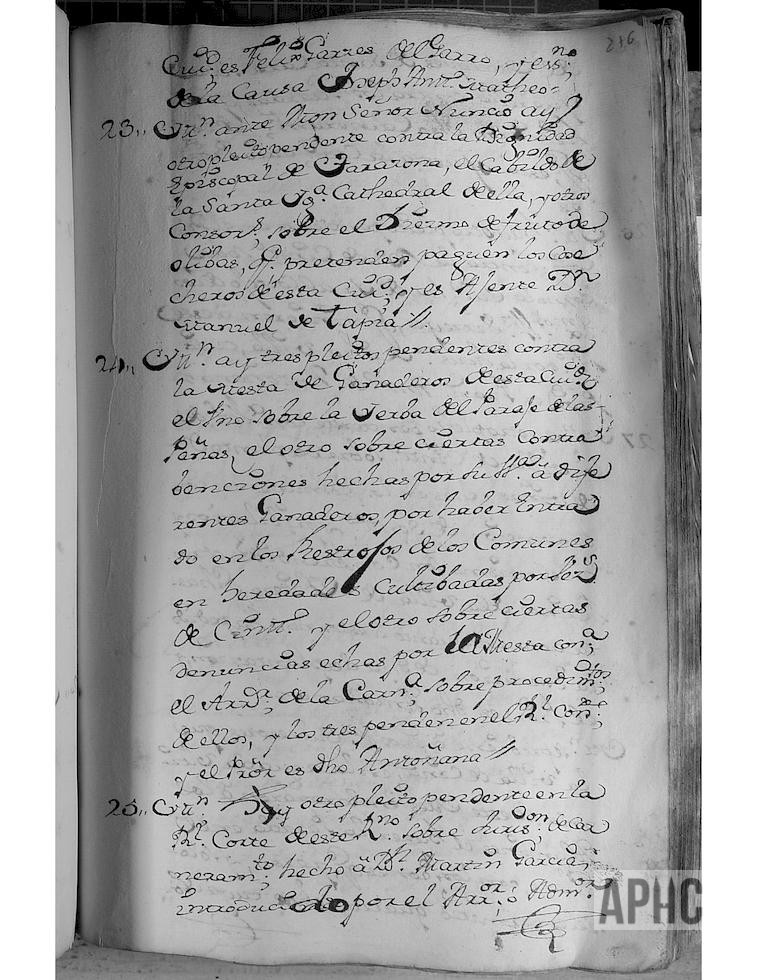 216
Ciud; es Felix Garzes del Garro, y essno
de la Causa Joseph Antt. Matheo =
23,, Ytt.n ante Mon Señor Nuncio ay
otro pleito pendente contra la Dignidad
Episcopal de Tarazona, el Cabildo de
la Santa Yg.a Cathedral de ella, y otros
Consor.s, sobre el Diezmo de fruto de
olibas, q. pretenden paguen los Cose
cheros de esta Ciud; y es Ajente Dn
Manuel de Tapia //.
24,, Ytt.n ay tres pleitos pendentes contra
la Mesta de Ganaderos de esta Ciud;
el Uno sobre la Yerba del Paraje de las
Peñas, el otro sobre ciertas Contra
benciones hechas por su Mag.d à dife
rentes Ganaderos, por haber Entra
do en los Restrojos de los Comunes
en heredades Cultibadas por
de Cintt. y el otro sobre ciertas
denuncias echas por la Mesta con.a
el Arr.or; de la Carn.a sobre procedim.tos
de ellos, y los tres penden en el R.l Con.;
y el Pror es dho Antoñana //
25,, Ytt.n Hay otro pleito pendente en la
R.l Corte de este R.no sobre de Car
neram.to; hecho à D.n Martin Garcia,
introducido por el Arr.or, ò Adm.or
APHC